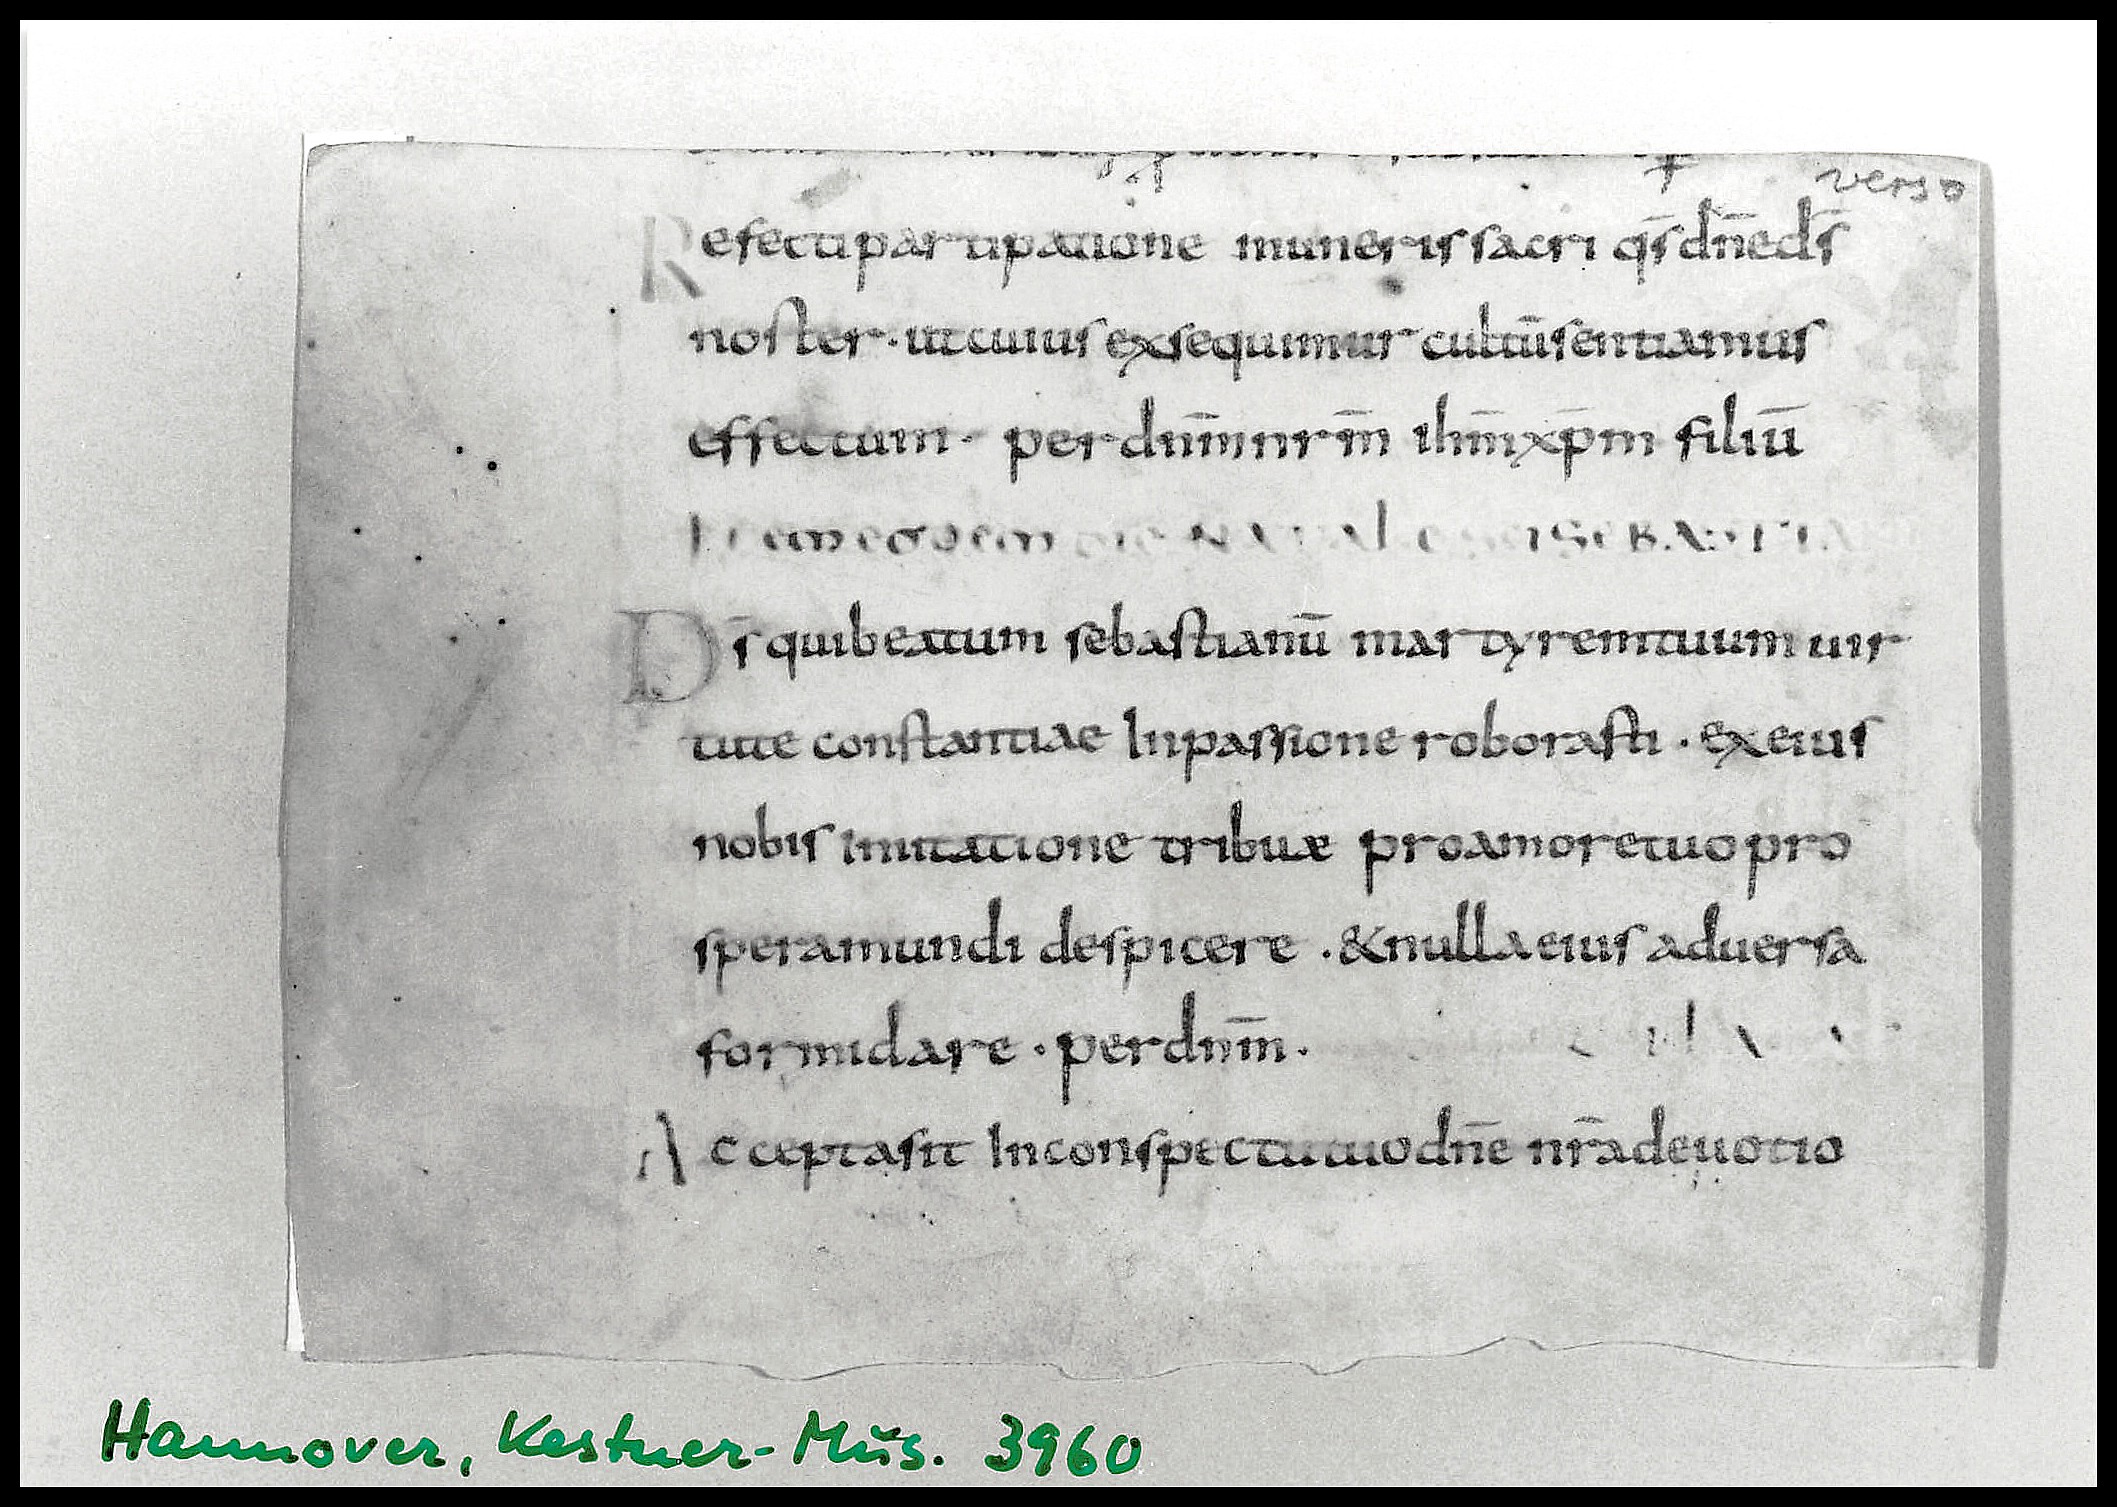 verso
Refecti partipatione muneris sacri q̄s dn̄e ds̄
noster · ut cuius exsequimur cultū sentiamus
effectum · per dnm̄ nrm̄ ihm̄ xp̄m filiū
Ds̄ qui beatum sebastianū martyrem tuum uir
tute constantiae In passione roborasti · ex eius
nobis Imitatione tribuæ pro amore tuo pro
spera mundi despicere · & nulla eius aduersa
formidare · per dnm̄ ·
Accepta sit In conspectu tuo dn̄e nr̄a deuotio
Hannover, Kestner-Mus. 3960